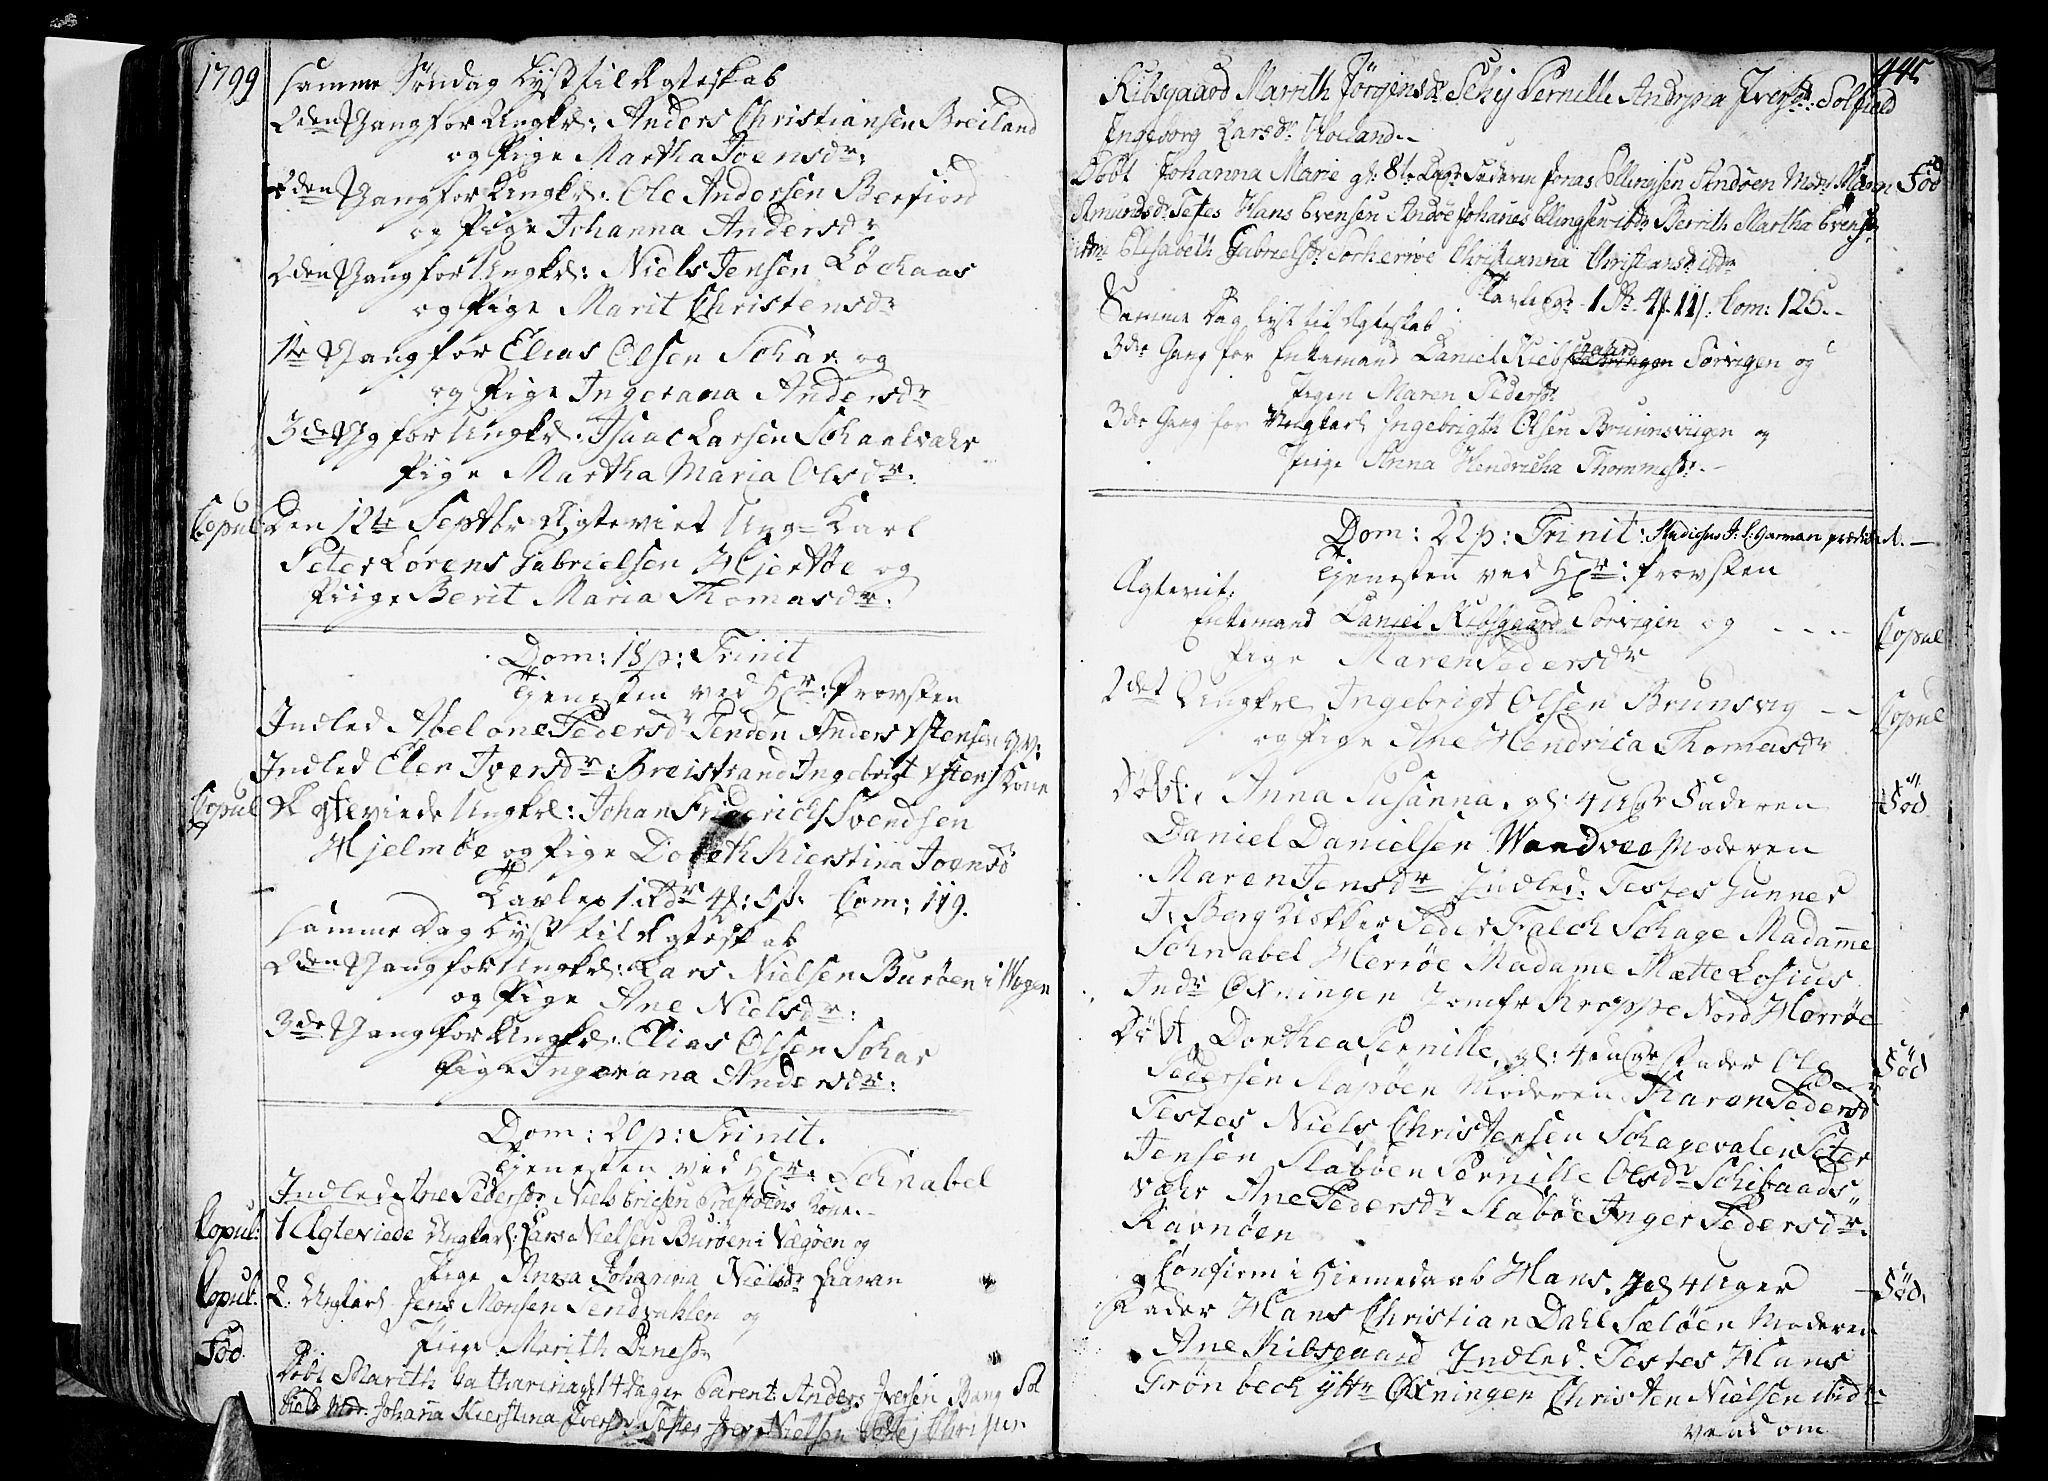 1799
Samme Søndag Lyst til Ægteskab
2den Gang for Ungkl: Anders Christiansen Breiland
og Pige Martha Joensdr:
2den Gang for Ungkl: Ole Andersen Berfiord
og Pige Johanna Andersdr
2den Gang for Ungkl: Niels Jensen Løckaas
og Pige Marit Christensdr
1te Gang for Elias Olsen Schar og
og Pige Ingerana Andersdr
3de Gg for Ungkl: Isaac Larsen Schaalvahr
Pige Martha Maria Olsdr:
Copul Den 12te Septbr Ægteviet Ung=Karl
Peter Lorens Gabrielsen Hjertøe og
Piige Berit Maria Thomasdr.
Dom: 18 p: Trinit
Tjenesten ved Hr: Provsten
Indled Abelone Pedersdr Tenden Anders Ystensen
Indled Elen Iversdr: Breistrand Ingebrigt Ystens Kone
Copul Ægteviede Ungkl: Johan Friderich Svendsen
Hjelmøe og Pige Doreth Kierstina Joensd
Tavlep 1 Rdr 4 s: Com: 119.
Samme Dag Lyst til Ægteskab
2den Gang for Ungkl: Lars Nielsen Burøen i Wegen
og Pige Ane Nielsdr:
3de Gang for Ungkl: Elias Olsen Schar
Pige Ingerana Andersdr:
Dom: 20 p: Trinit.
Tjenesten ved Hr: Schnabel
Indled Ane Pedersdr Niels Ericsen Præstøens Kone.
Copul: 1 Ægteviede Ungkarl: Lars Nielsen Burøen i Vægøen og
Pige Anna Johanna Nielsdr
Copul: 2. Ungkarl Jens Monsen Sendvahlen og
Piige Marith Dinesdr
Fød. Døbt Marith Catharina gl 14 dager Parent: Anders Iversen Bang Sol
Modr. Johana Kierstina Iversdr Testes Iver Nielsen Schej Christen
445
Kibsgaard Marrith Jørgensdr Schej Pernille Andrina Iversdr: Solfield
Ingeborg Larsdr Holand..
Døbt Johanna Marie gl: 8te Dage Faderen Jonas Ellingsen Andøen Modr: Maren Fød
Amundsdr Testes Hans Evensen Andøe Johanes Ellingsen ibdr Berrith Martha Evensdr
Elisabeth Gabrielsdr Sørherrøe Christianna Christiansdr ibdr
Tavlep: 1 Rdr 4 11 s. Com: 125.
Samme Dag lyst til Ægteskab
3de Gang for Enkemand Daniel Kiebsgaard Sørvigen og
Pigen Maren Pedersdr
3de Gang for Ungkarl Ingebrigth Olsen Brunnsviigen og
Piige Anna Hendricha Thommesdr.
Dom: 22 p: Trinit: Studiosus J. C. Garman prædiked.
Tjenesten ved Hr: Provsten
Ægteviet:
Enkemand Daniel Kibsgaard Sørvigen og Copul
Pige Maren Pedersdr
2det Ungkrl Ingebrigt Olsen Brunsvig Copul
og Pige Ane Hendrica Thomasdr
Døbt: Anna Susanna, gl: 4 Uger Faderen Fød
Daniel Danielsen Wandvee Moderen
Maren Jensdr Indled: Testes Gunner
J: Berg Klokker Peder Falch Schage Madame
Schnabel Herrøe Madame Mætte Losius
Indr Øxningen Jomfr Kroppe Nord Herrøe
Døbt Dorthea Pernille, gl: 4 Uger Fader Ole Fød
Pedersen Slapøen Moderen Karen Pedersdr
Testes Niels Christensen Schagevalen Peter
Jensen Slabøen Pernille Olsdr Schibaads
vahr Ane Pedersdr Slabøe Inger Pedersdr.
Ravnøen
Confirm i Hiemedaab Hans, gl 4 Uger Fød.
Fader Hans Christian Dahl Sæløen Moderen
Ane Kibsgaard Indled. Testes Hans
Grønbech ÿttr Øxningen Christen Nielsen ibidr
vend om